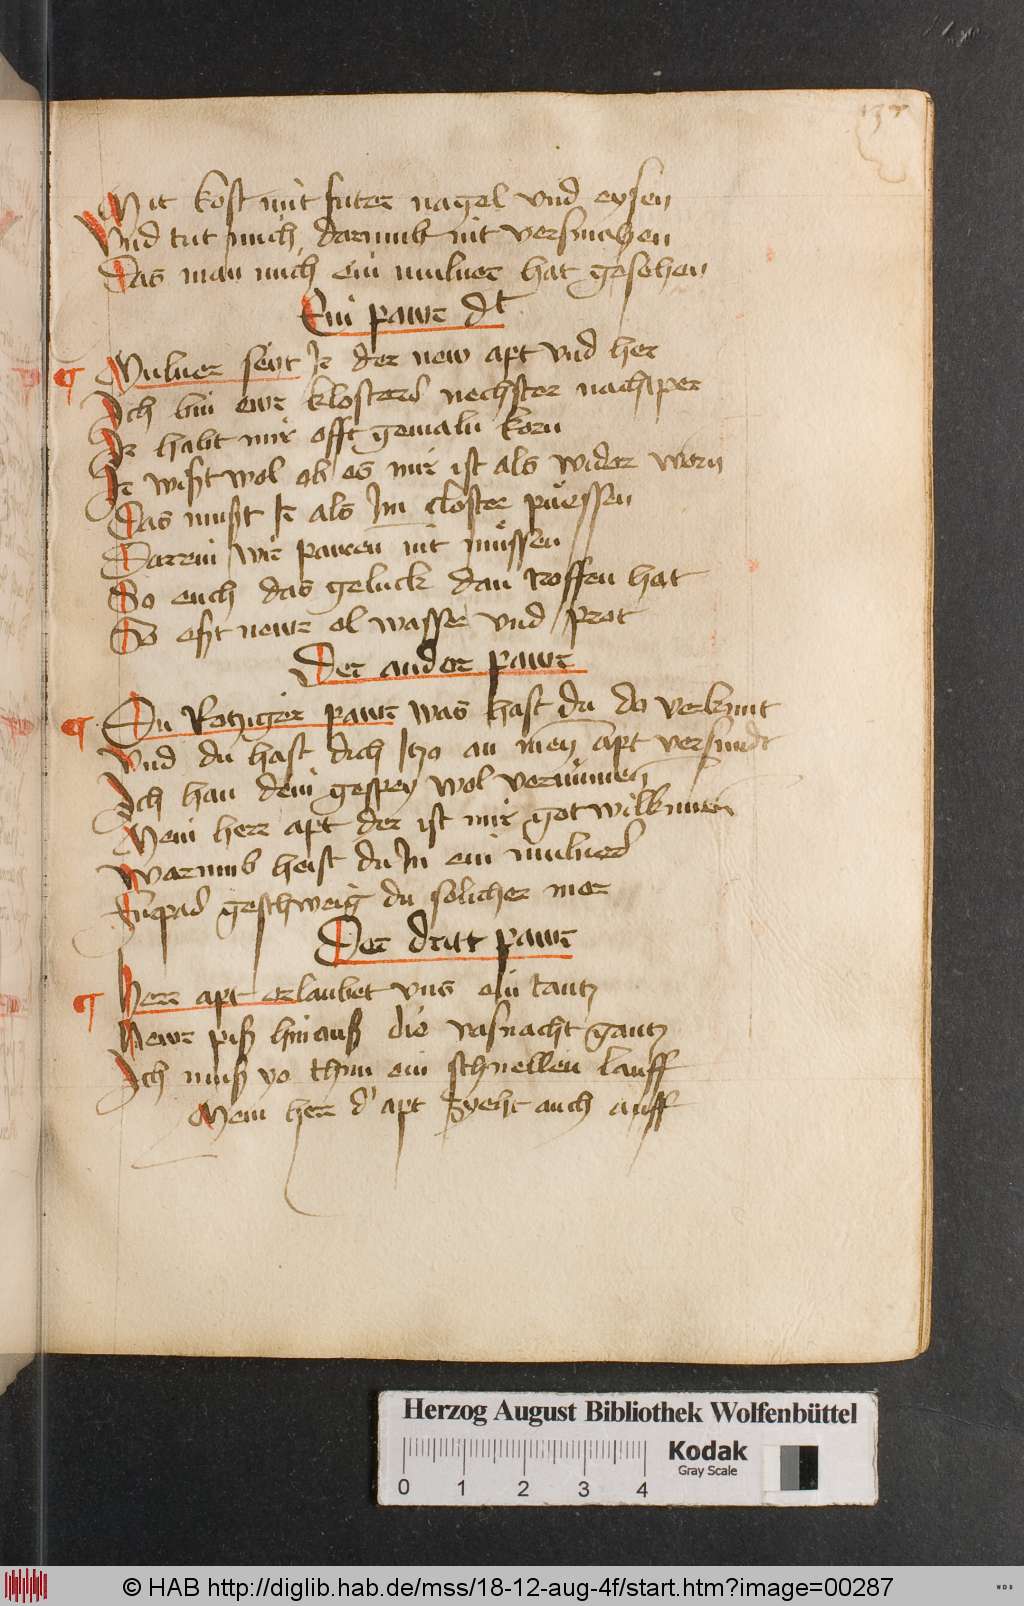 Mit kost mit futer nagel vnd eysen
Vnd tut mich darumb nit versmehen
Das man mich ein mulner hat gesehen
Ein pawr dt
Mulner seyt Ir der new apt vnd her
Ich bin ewr klosters nechster nachtper
Ir habt mir offt gemaln korn
Ir wißt wol ob es mir ist als wider worn
Das mußt Ir als Im closter püessen
Darein wir pawren nit müssen
So euch das geluck dan troffen hat
So eßt newr ol wasser vnd prot
Der ander pawr
Du Rotziger pawr was hast du do verkunt
Vnd du hast dich Itzo an mein apt versundt
Ich han dein gespey wol vernumen
Mein herr apt der ist mir got wilkumen
Warumb heist du In ein mulner
geschweig du solicher mer
Der dritt pawr
Herr apt erlaubet vns ein tantz
Newr piß hinauß die vasnacht gantz
Ich muß yo thun ein schnellen lauff
Mein herr d' apt zyeht auch auff
Herzog August Bibliothek Wolfenbüttel
Kodak
Gray Scale
0 1 2 3 4
© HAB http://diglib.hab.de/mss/18-12-aug-4f/start.htm?image=00287